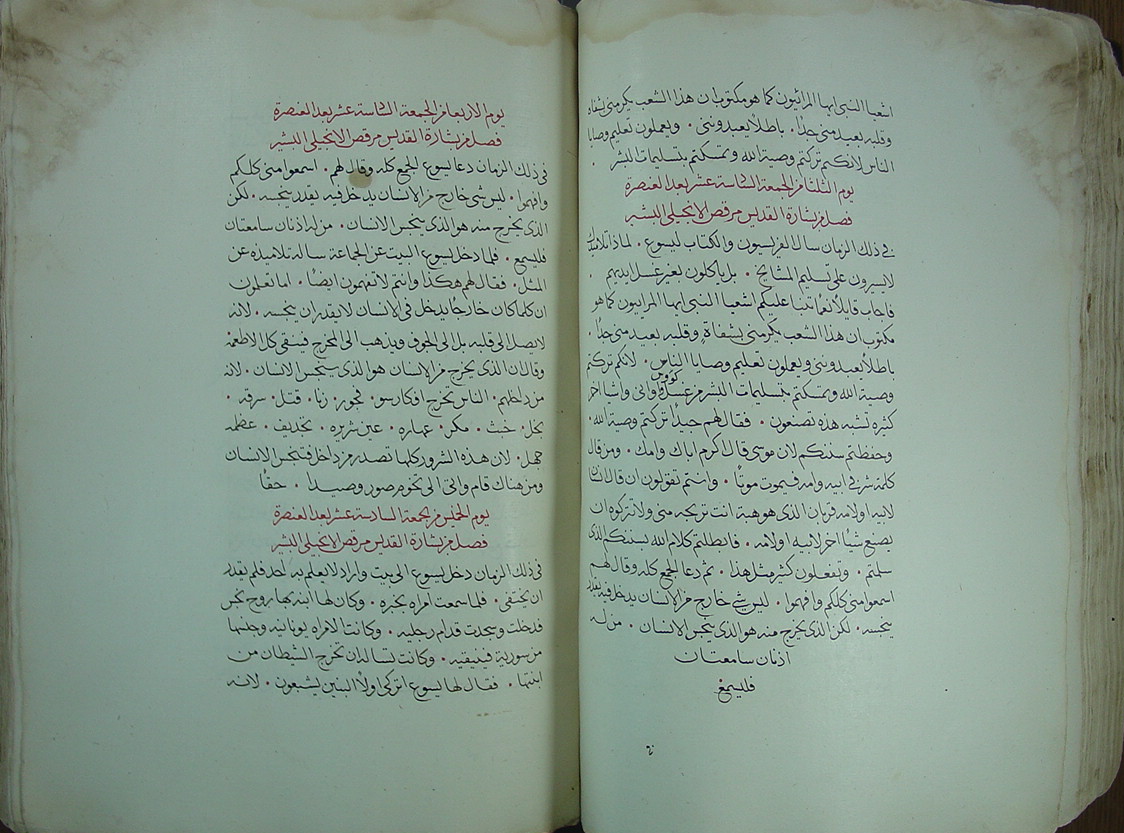 اشعيا النبى ايها المرايبون كما هو مكتوب ان هذا الشعب يكرمنى بشفاه
وقلبه بعيد منى جدًا. باطلاً يعبدوننى. ويعملون تعليم وصايا
الناس لانكم تركتم وصية الله وتمسكتم بتسليمات البشر.
يوم الثلثا من الجمعة السادسة عشر بعد العنصرة
فصل من بشارة القديس مرقص الانجيلى البشير
فى ذلك الزمان سال الفريسيون والكتاب ليسوع. لماذا تلاميذك
لا يسيرون على تسليم المشايخ. بل ياكلون بغير غسل ايديهم.
فاجاب قايلاً نعمًا تنبا عليكم اشعيا النبى ايها المرايبون كما هو
مكتوب ان هذا الشعب يكرمنى بشفاة وقلبه بعيد منى جدًا.
باطلاً يعبدوننى ويعملون تعليم وصايا الناس. لانكم تركتم
وصية الله وتمسكتم بتسليمات البشر من غسل كووس واوانى واشيا اخر
كثيرة تشبه هذه تصنعون. فقال لهم جيدًا تركتم وصية الله.
وحفظتم سنتكم لان موسى قال كرم اباك وامك. ومن قال
كلمة شر فى ابيه وامه فيموت موتًا. وانتم تقولون ان قال انسان
لابيه او لامه قربان الذى هو هبة انت تربحه منى ولا تتركوه ان
يصنع شيًا اخر لابيه او لامه. فابطلتم كلام الله بسنتكم الذى
سلمتم. وتفعلون كثير مثل هذا. ثم دعا الجمع كله وقال لهم
اسمعوا منى كلكم وافهموا. ليس شى خارج من الانسان يدخل فيه يقدر
ينجسه. لكن الذى يخرج منه هو الذى ينجس الانسان. من له
اذنان سامعتان
فليسمع
يوم الاربعا من الجمعة السادسة عشر بعد العنصرة
فصل من بشارة القديس مرقص الانجيلى البشير
فى ذلك الزمان دعا يسوع الجمع كله وقال لهم. اسمعوا منى كلكم
وافهموا. ليس شى خارج من الانسان يدخل فيه يقدر ينجسه. لكن
الذى يخرج منه هو الذى ينجس الانسان. من له اذنان سامعتان
فليسمع. فلما دخل يسوع البيت عن الجماعة ساله تلاميذه عن
المثل. فقال لهم هكذا وانتم لا تفهمون ايضًا. اما تعلمون
ان كلما كان خارجًا يدخل فى الانسان لا يقدر ان ينجسه. لانه
لا يصل الى قلبه بل الى الجوف ويذهب الى المخرج فينقى كل الاطعمة
وقال ان الذى يخرج من الانسان هو الذى ينجس الانسان. لانه
من داخلهم. الناس تخرج افكار سو. فجور. زنا. قتل. سرقه.
بخل. خبث. مكر. عهاره. عين شريره. تجديف. عظمه
جهل. لان هذه الشرور كلها تصدر من داخل فتنجس الانسان
ومن هناك قام واتى الى تخوم صور وصيدا. حقًا
يوم الخميس من الجمعة السادسة عشر بعد العنصرة
فصل من بشارة القديس مرقص الانجيلى البشير
فى ذلك الزمان دخل يسوع الى بيت واراد لا يعلم به احد فلم يقدر
ان يختفى. فلما سمعت امراه بخبره. وكان لها ابنه بها روح نجس
فدخلت وسجدت قدام رجليه. وكانت الامراه يونانيه وجنسها
من سورية فينيقيه. وكانت تساله ان تخرج الشيطان من
ابنتها. فقال لها يسوع اتركى اولاً البنين يشبعون. لانه